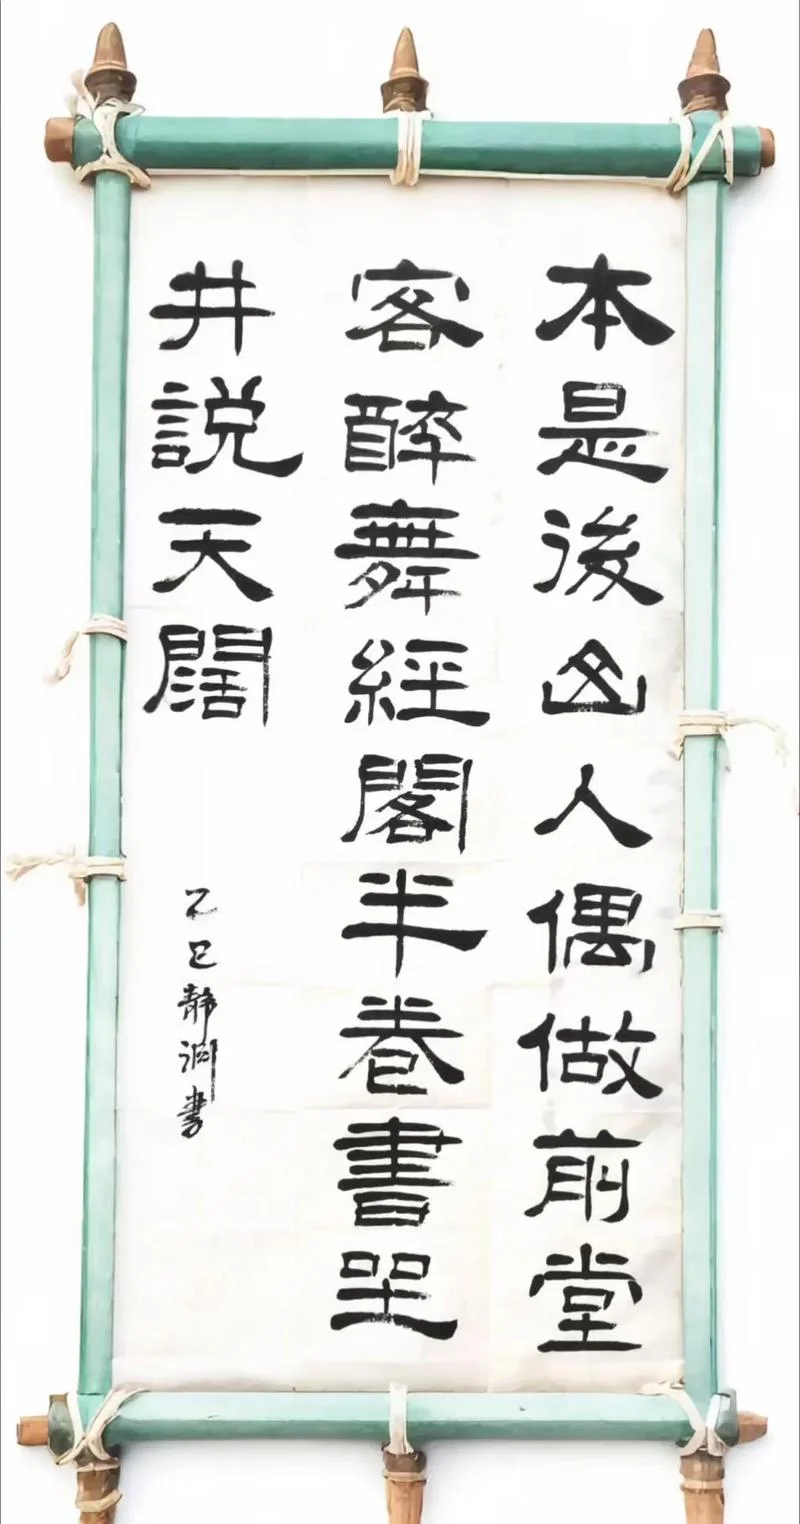 本是後山人偶做前堂
客醉舞經閣半卷書坐
井説天闊
乙巳靜淵書